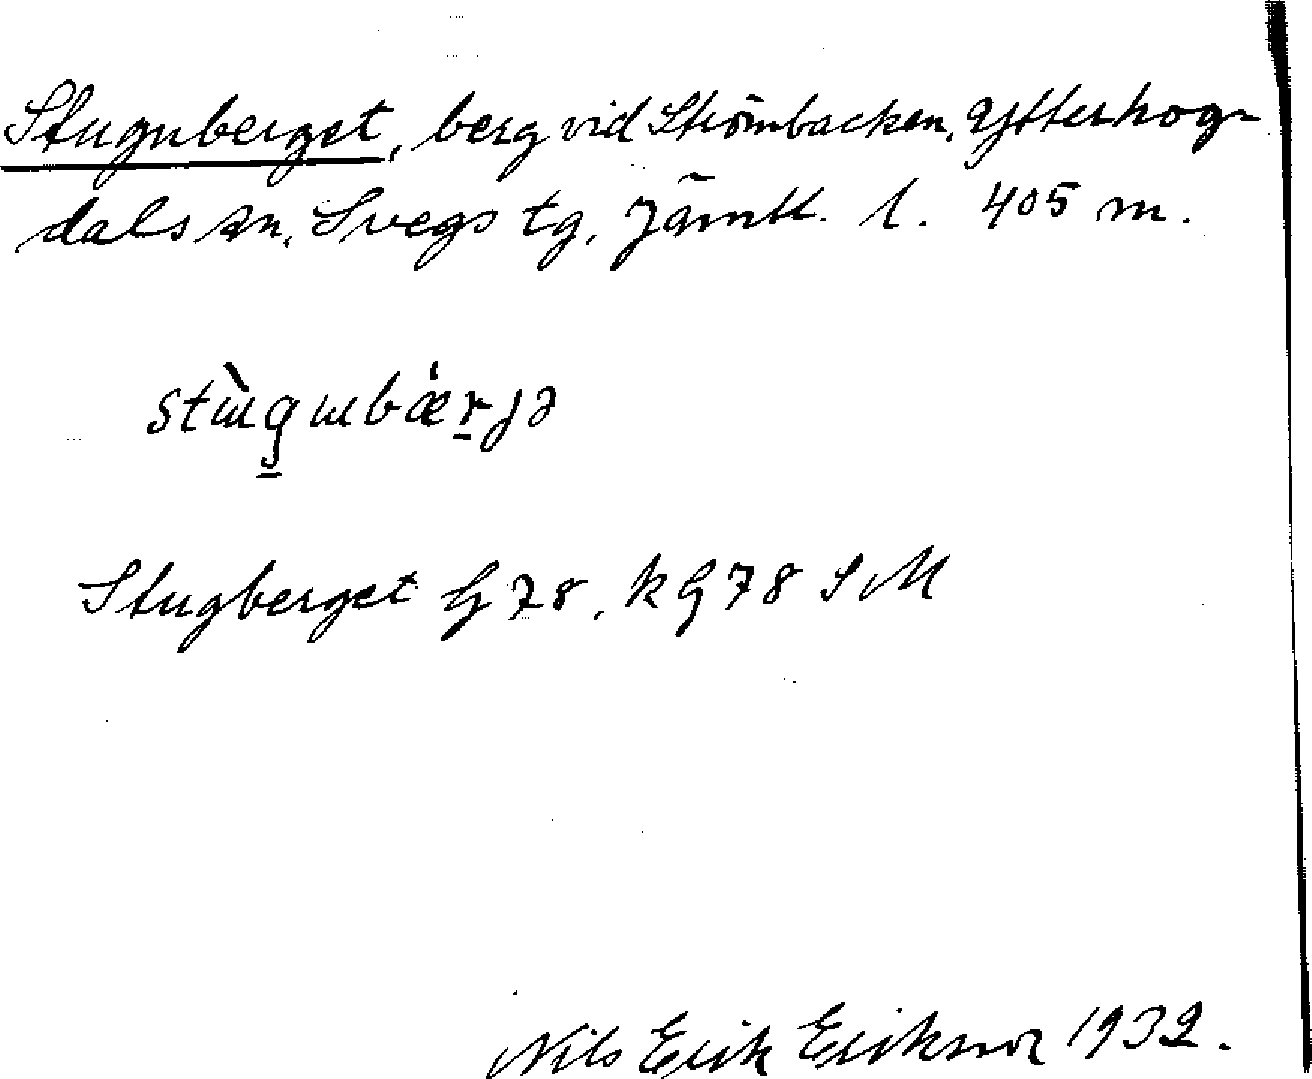 Stuguberget, berg vid Strömbacken, Ytterhog-
dals sn, Svegs tg, Jämtl. l. 405 m.
stɯ̀g̲ɯbǽr̲ȷə
Stugberget G 78, k G 78 SM
Nils Erik Eriksson 1932.